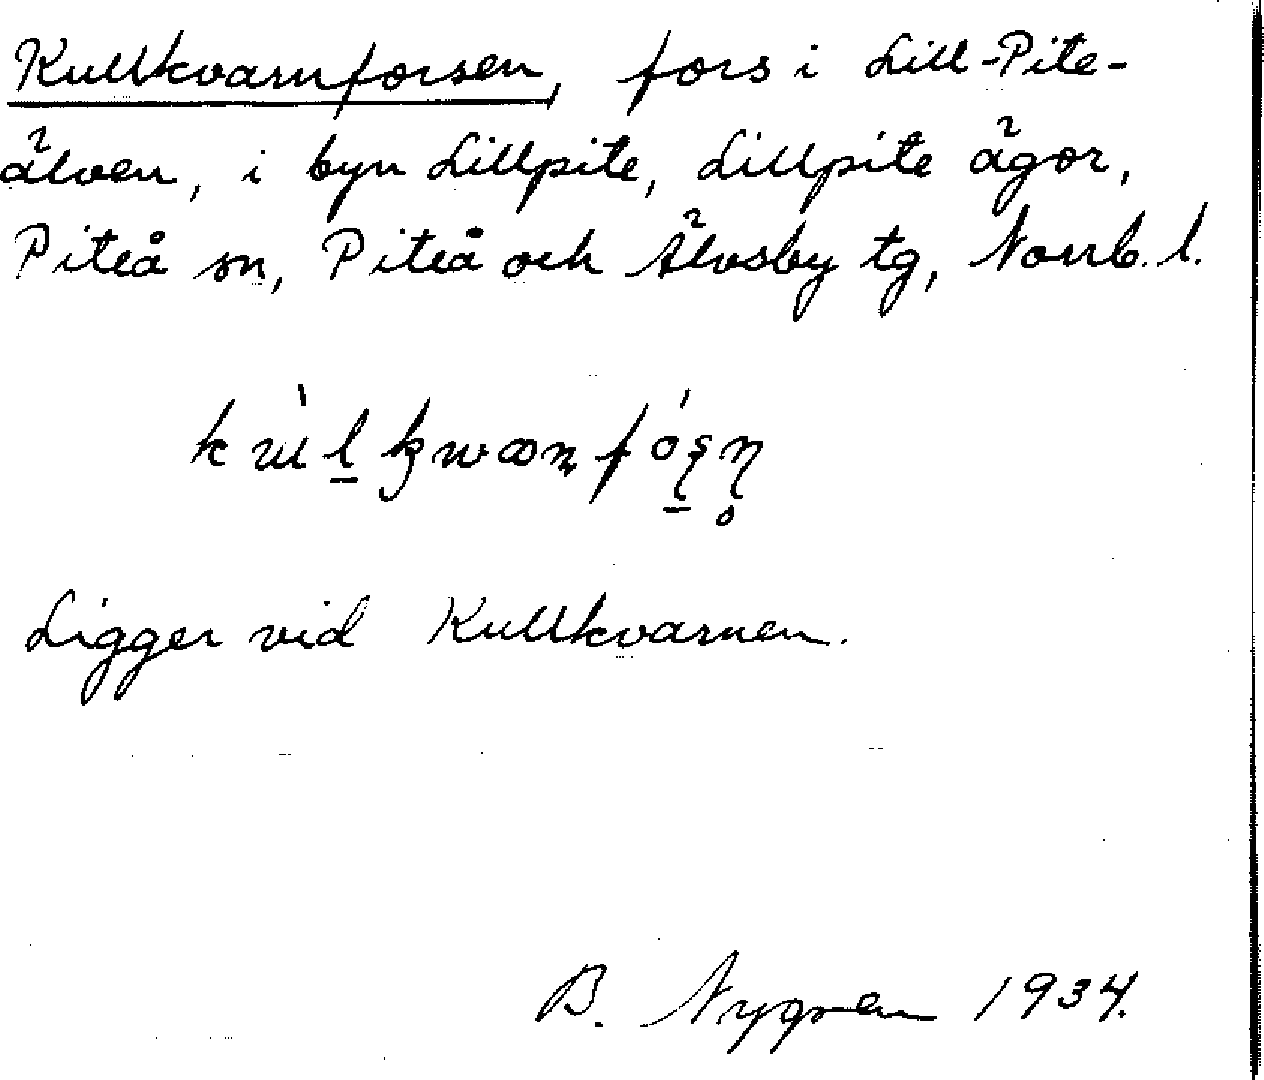 Kullkvarnforsen, fors i Lill-Pite-
älven, i byn Lillpite, Lillpite ägor,
Piteå sn, Piteå och Älvsby tg, Norrb. l.
Ligger vid Kullkvarnen.
B. Nygren 1934.